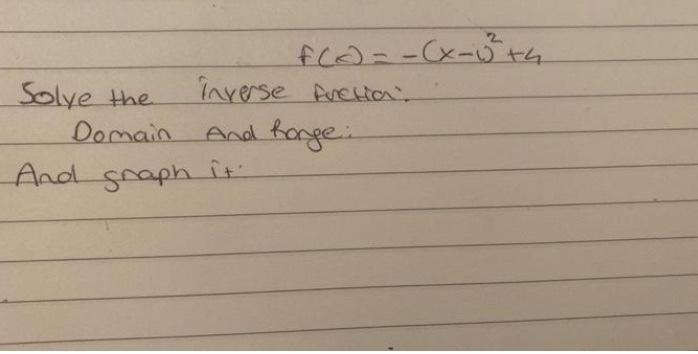 f(x) = -(x-1)²+4
Solve the inverse function:
Domain And Range:
And graph it.